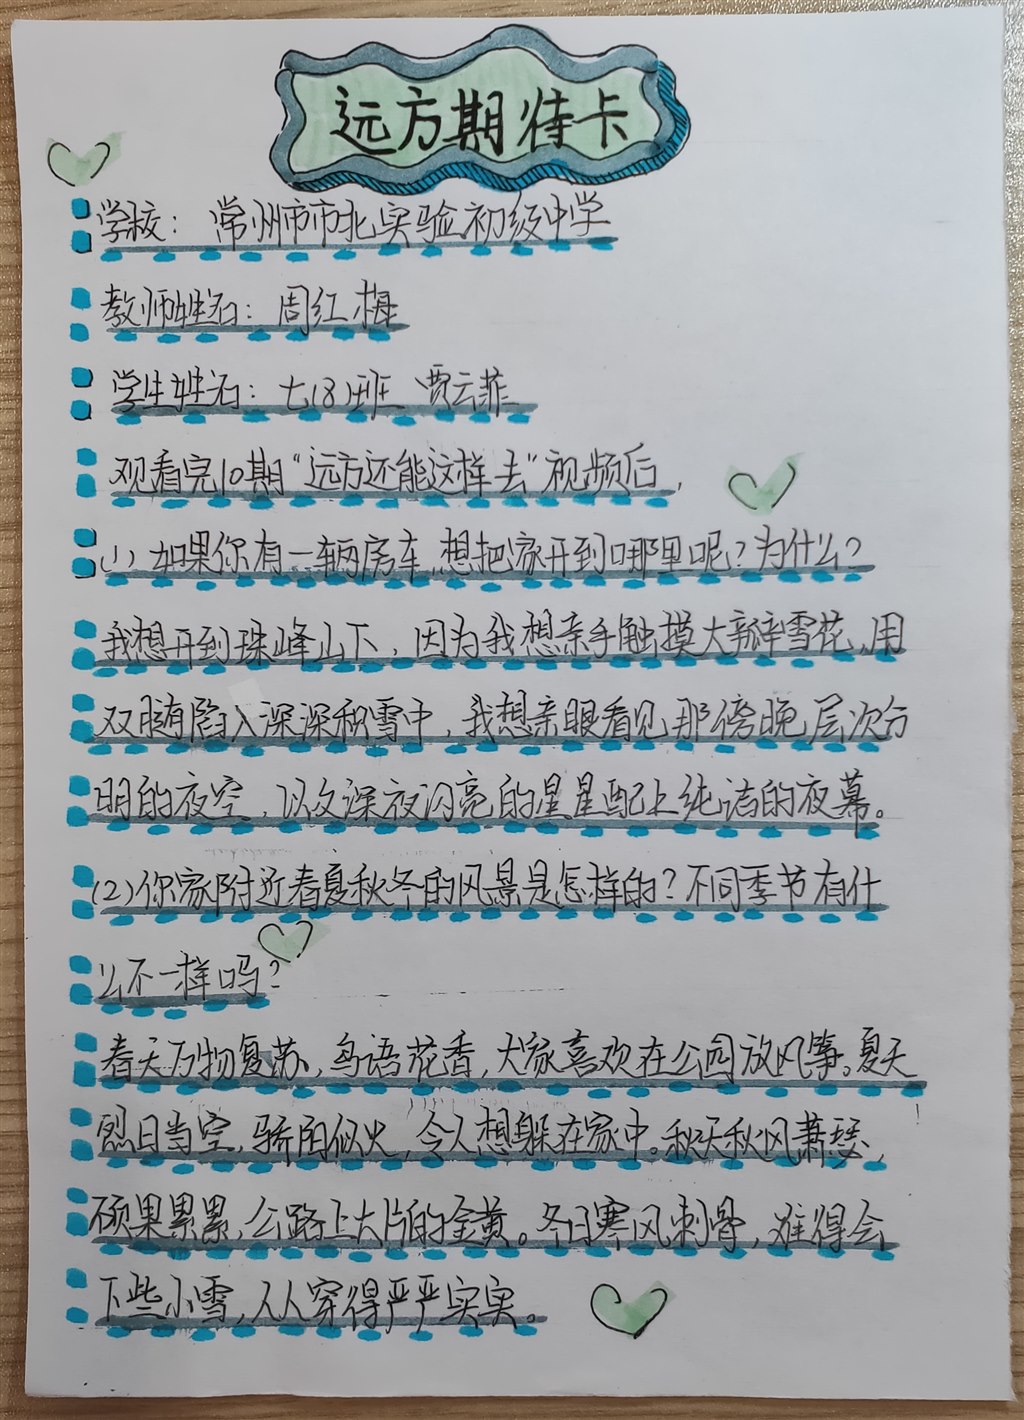 远方期待卡
学校：常州市市北实验初级中学
教师姓名：周红梅
学生姓名：七(8)班 贾云菲
观看完10期“远方还能这样去”视频后，
(1)如果你有一辆房车，想把家开到哪里呢？为什么？
我想开到珠峰山下，因为我想亲手触摸大瓣雪花，用
双腿陷入深深积雪中，我想亲眼看见那傍晚层次分
明的夜空，以及深夜闪亮的星星配上纯洁的夜幕。
(2)你家附近春夏秋冬的风景是怎样的？不同季节有什
么不一样吗？
春天万物复苏，鸟语花香，大家喜欢在公园放风筝。夏天
烈日当空，骄阳似火，令人想躲在家中。秋天秋风萧瑟，
硕果累累，公路上大片的金黄。冬日寒风刺骨，难得会
下些小雪，人人穿得严严实实。